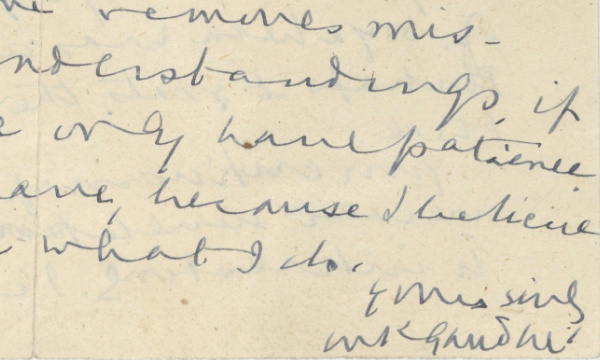 e removes mis-
nderstandings, if
e only have patience
ave, because I believe
what I do.
yours sincly
MK Gandhi